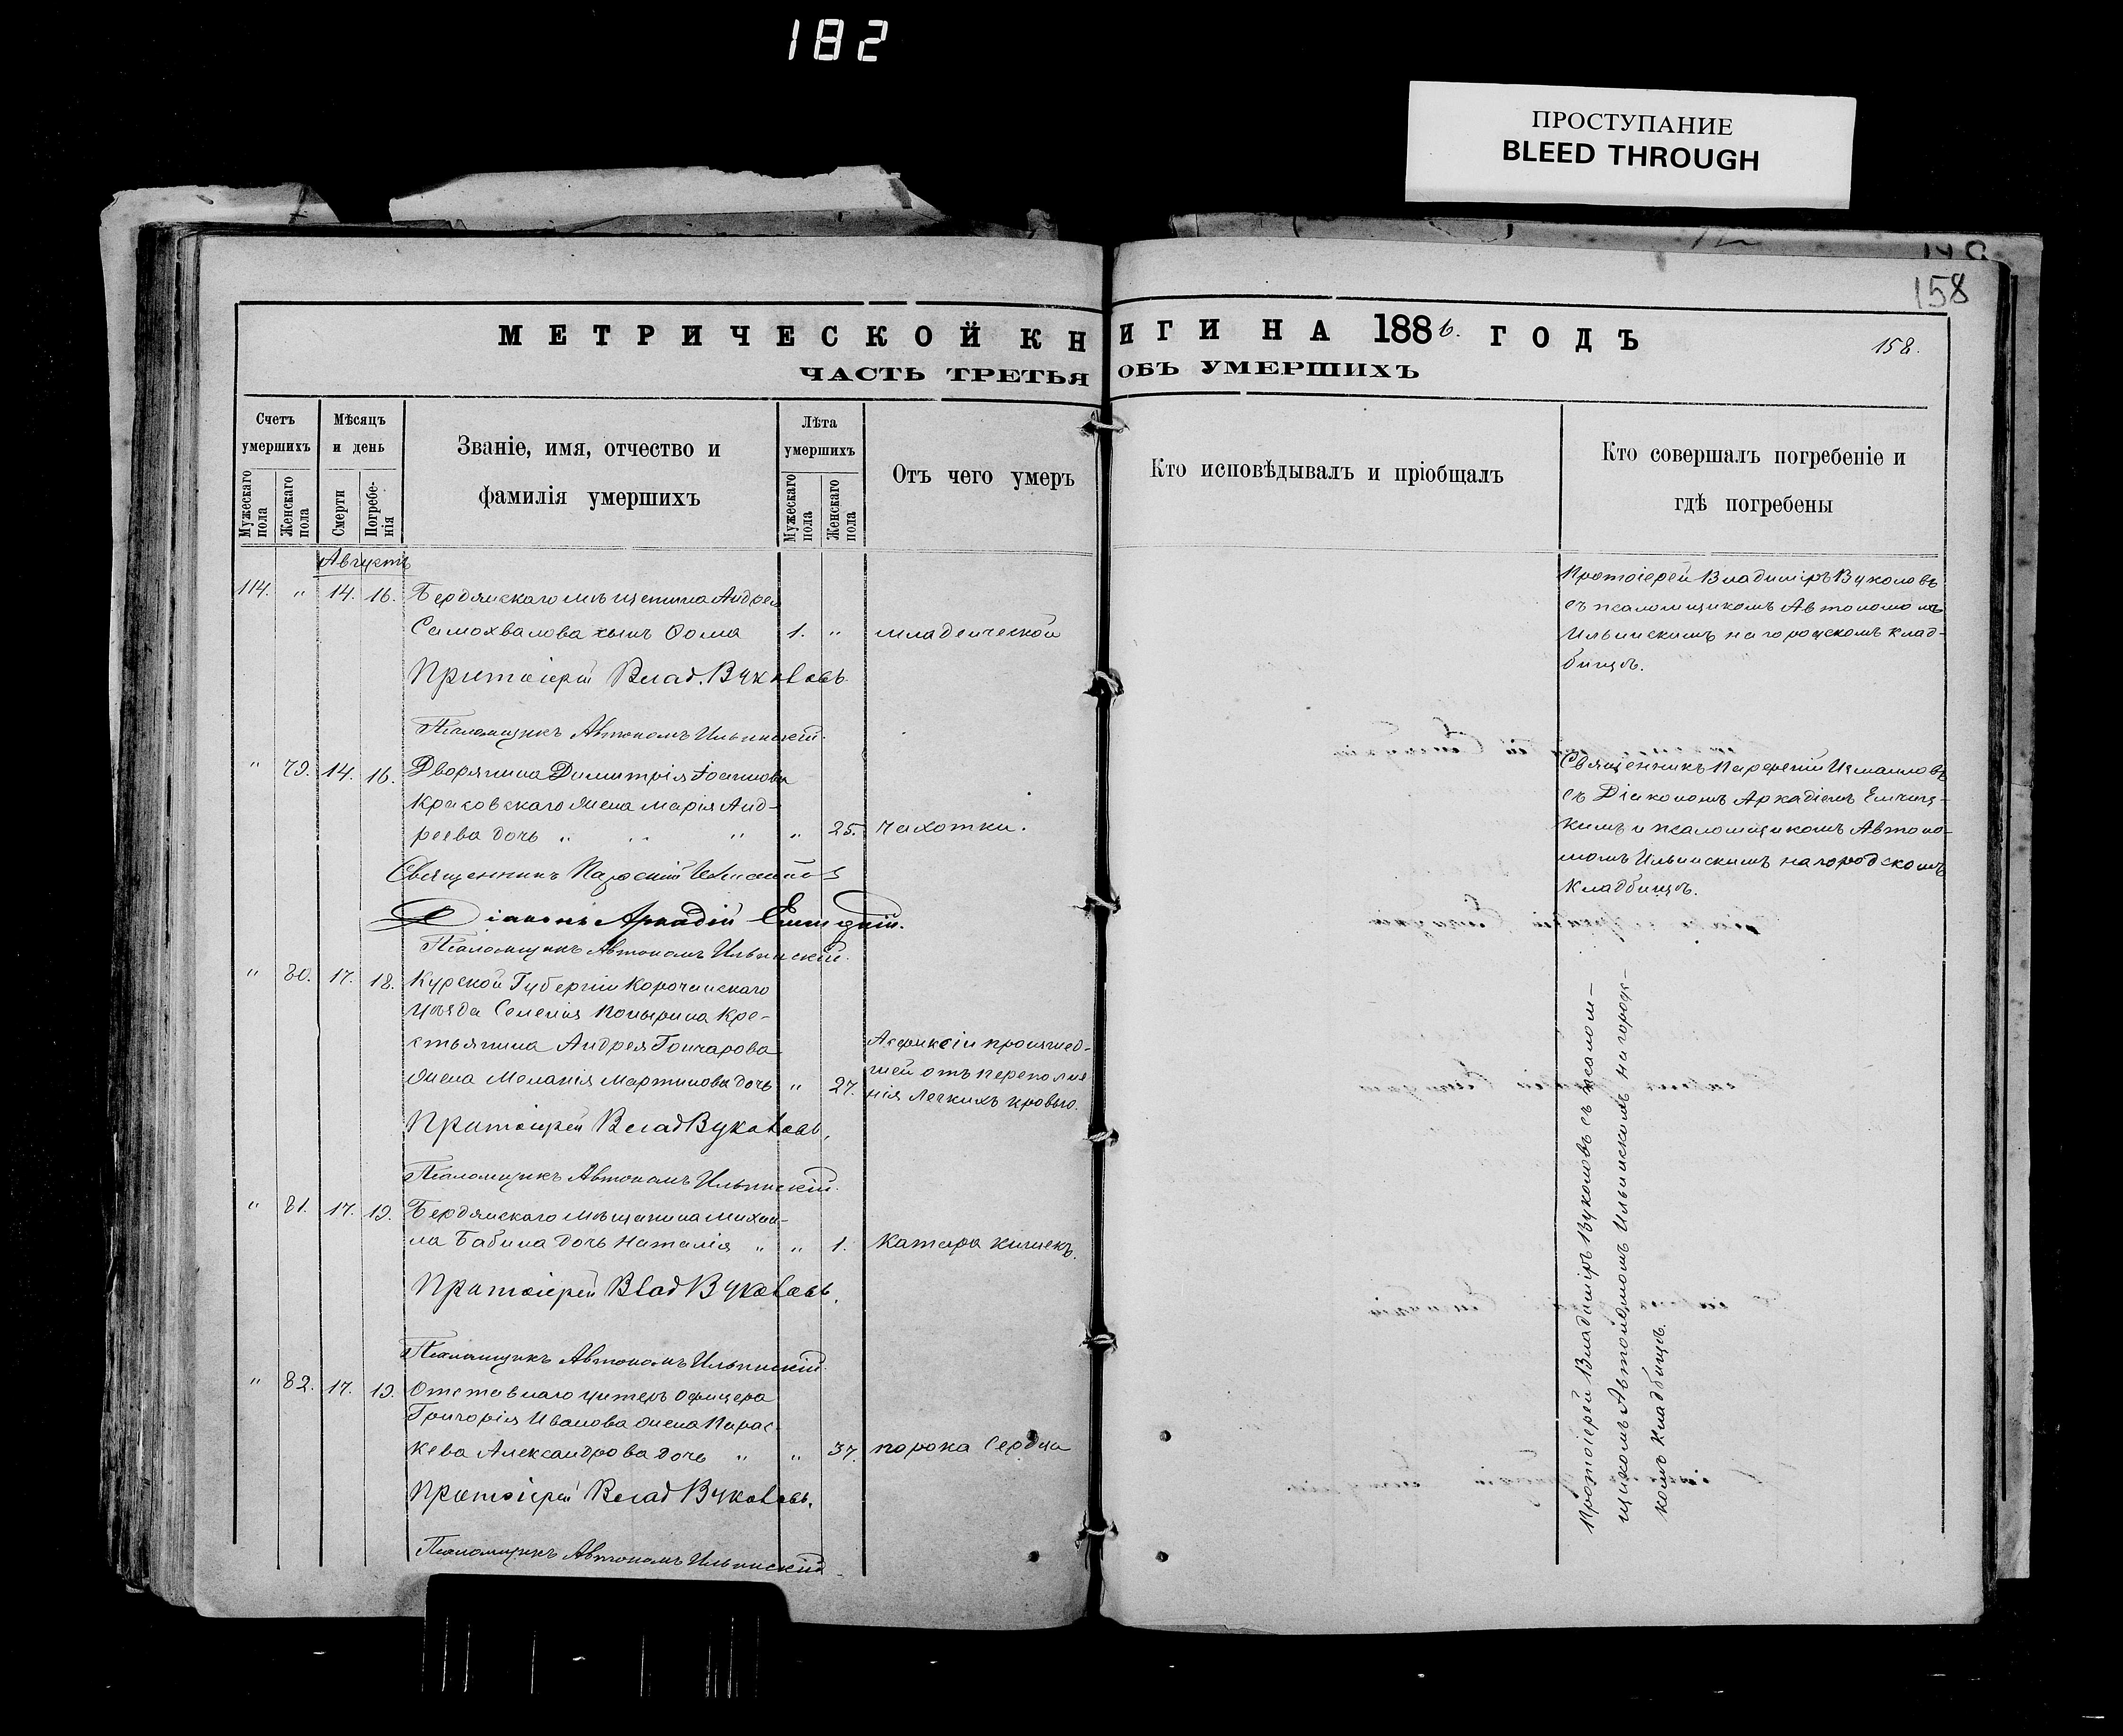 182
ПРОСТУПАНИЕ
BLEED THROUGH
158
МЕТРИЧЕСКОЙ КНИГИ НА 1886. ГОДЪ
158.
ЧАСТЬ ТРЕТЬЯ ОБЪ УМЕРШИХЪ
Счетъ умершихъ
Мужескаго пола
Женскаго пола
Мѣсяцъ и день
Смерти
Погребенія
Званіе, имя, отчество и
фамилія умершихъ
Лѣта умершихъ
Мужескаго пола
Женскаго пола
Отъ чего умеръ
Кто исповѣдывалъ и пріобщалъ
Кто совершалъ погребеніе и
гдѣ погребены
Августъ
114. " 14. 16. Бердянскаго мѣщанина Андрея
Самохвалова сынъ Ѳома 1. " младенческой
Протоіерей Влад. Вуколовъ.
Псаломщикъ Автономъ Ильинскій.
Протоіерей Владиміръ Вуколовъ
съ псаломщикомъ Автономомъ
Ильинскимъ на городскомъ клад-
бищѣ.
" 79. 14. 16. Дворянина Димитрія Іоаннова
Красовскаго жена Марія Анд-
реева дочь " " " " 25. чахотки.
Священникъ Парѳеній Измаиловъ
Діаконъ Аркадій
Псаломщикъ Автономъ Ильинскій.
Священникъ Парѳеній Измаиловъ
съ Діакономъ Аркадіемъ
кимъ и псаломщикомъ Автоно-
момъ Ильинскимъ на городскомъ
кладбищѣ.
" 80. 17. 18. Курской Губерніи Корочанскаго
уѣзда Селенія Кре-
стьянина Андрея Гончарова
жена Меланія Мартинова дочь " 27.
Асфиксіи происшед-
шей отъ переполне
нія легкихъ кровью.
Протоіерей Влад Вуколовъ.
Псаломщикъ Автономъ Ильинскій.
" 81. 17. 19. Бердянскаго мѣщанина Михаи-
ла Бабина дочь Наталія " " 1. Катара кишекъ.
Протоіерей Влад Вуколовъ.
Псаломщикъ Автономъ Ильинскій.
" 82. 17. 19. Отставнаго унтеръ офицера
Григорія Иванова жена Парас-
кева Александрова дочь " " 37. порока Сердца
Протоіерей Влад Вуколовъ.
Псаломщикъ Автономъ Ильинскій
Протоіерей Владиміръ Вуколовъ съ псалом-
щикомъ Автономомъ Ильинскимъ на городс-
комъ кладбищѣ.